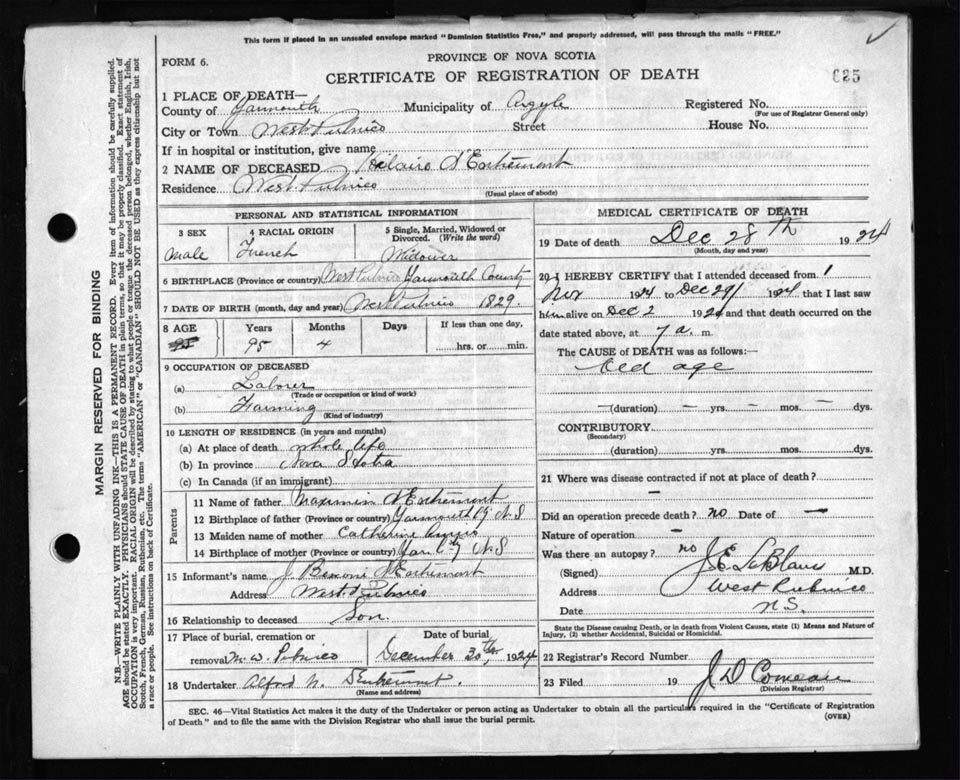 This form if placed in an unsealed envelope marked "Dominion Statistics Free," and properly addressed, will pass through the mails "FREE."
FORM 6.
PROVINCE OF NOVA SCOTIA
CERTIFICATE OF REGISTRATION OF DEATH
625
1 PLACE OF DEATH—
County of Yarmouth Municipality of Argyle Registered No.
(For use of Registrar General only)
City or Town West Pubnico Street House No.
If in hospital or institution, give name
2 NAME OF DECEASED D'Entremont
Residence West Pubnico
(Usual place of abode)
PERSONAL AND STATISTICAL INFORMATION
3 SEX 4 RACIAL ORIGIN 5 Single, Married, Widowed or Divorced. (Write the word)
Male French Widower
6 BIRTHPLACE (Province or country) West Pubnico Yarmouth County
7 DATE OF BIRTH (month, day and year) West Pubnico 1829.
8 AGE Years Months Days If less than one day,
95 95 4 hrs. or min.
9 OCCUPATION OF DECEASED
(a) Laborer
(Trade or occupation or kind of work)
(b) Farming
(Kind of industry)
10 LENGTH OF RESIDENCE (in years and months)
(a) At place of death whole life
(b) In province Nova Scotia
(c) In Canada (if an immigrant)
Parents
11 Name of father Maximin D'Entremont
12 Birthplace of father (Province or country) Yarmouth Cy N.S
13 Maiden name of mother Catherine
14 Birthplace of mother (Province or country) Yar Cty N.S
15 Informant's name J. Benoni D'Entremont
Address West Pubnico
16 Relationship to deceased Son.
17 Place of burial, cremation or removal M. W. Pubnico Date of burial December 30th, 1924
18 Undertaker Alfred N. D'Entremont.
(Name and address)
MEDICAL CERTIFICATE OF DEATH
19 Date of death Dec 28th 1924
(Month, day and year)
20 I HEREBY CERTIFY that I attended deceased from 1
Nov 1924 to Dec 29 1924 that I last saw
him alive on Dec 2 1924 and that death occurred on the
date stated above, at 7 a. m.
The CAUSE of DEATH was as follows:—
Old age
— (duration) — yrs. — mos. — dys.
CONTRIBUTORY
(Secondary)
(duration) yrs. mos. dys.
21 Where was disease contracted if not at place of death?
—
Did an operation precede death? no Date of —
Nature of operation —
Was there an autopsy? no
(Signed) J. E. LeBlanc M.D.
Address West Pubnico
Date N.S.
State the Disease causing Death, or in death from Violent Causes, state (1) Means and Nature of Injury, (2) whether Accidental, Suicidal or Homicidal.
22 Registrar's Record Number
23 Filed 19 J D Comeau
(Division Registrar)
SEC. 46—Vital Statistics Act makes it the duty of the Undertaker or person acting as Undertaker to obtain all the particulars required in the "Certificate of Registration
of Death" and to file the same with the Division Registrar who shall issue the burial permit. (OVER)
MARGIN RESERVED FOR BINDING
N.B.—WRITE PLAINLY WITH UNFADING INK—THIS IS A PERMANENT RECORD. Every item of information should be carefully supplied.
AGE should be stated EXACTLY. PHYSICIANS should STATE CAUSE OF DEATH in plain terms, so that it may be properly classified. Exact statement of
OCCUPATION is very important. RACIAL ORIGIN will be described by stating to what people or tongue the deceased person belonged, whether English, Irish,
Scotch, French, German, Russian, Ruthenian, etc. The terms "AMERICAN" or "CANADIAN" SHOULD NOT BE USED as they express citizenship but not
a race or people. See instructions on back of Certificate.